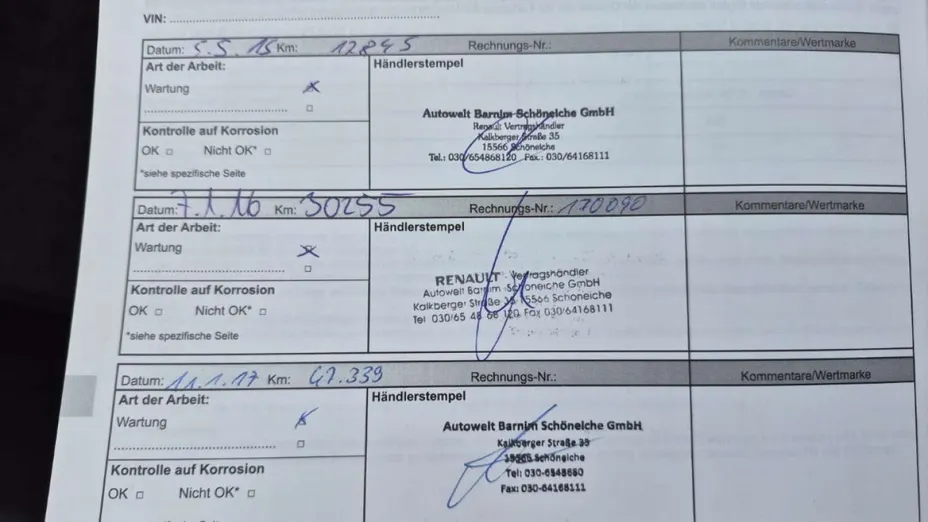 VIN:
Datum: 5.5.15 Km: 12845 Rechnungs-Nr.: Kommentare/Wertmarke
Art der Arbeit: Händlerstempel
Wartung
Autowelt Barnim Schöneiche GmbH
Renault Vertragshändler
Kalkberger Straße 35
15566 Schöneiche
Tel.: 030/654868120 Fax.: 030/64168111
Kontrolle auf Korrosion
OK Nicht OK*
*siehe spezifische Seite
Datum: 7.1.16 Km: 30255 Rechnungs-Nr.: 170090 Kommentare/Wertmarke
Art der Arbeit: Händlerstempel
Wartung
RENAULT Vertragshändler
Autowelt Barnim Schöneiche GmbH
Kalkberger Straße 35 15566 Schöneiche
Tel 030/65 48 68 120 Fax 030/64168111
Kontrolle auf Korrosion
OK Nicht OK*
*siehe spezifische Seite
Datum: 11.1.17 Km: 47.339 Rechnungs-Nr.: Kommentare/Wertmarke
Art der Arbeit: Händlerstempel
Wartung
Autowelt Barnim Schöneiche GmbH
Kalkberger Straße 35
15566 Schöneiche
Tel: 030-6548680
Fax: 030-64168111
Kontrolle auf Korrosion
OK Nicht OK*